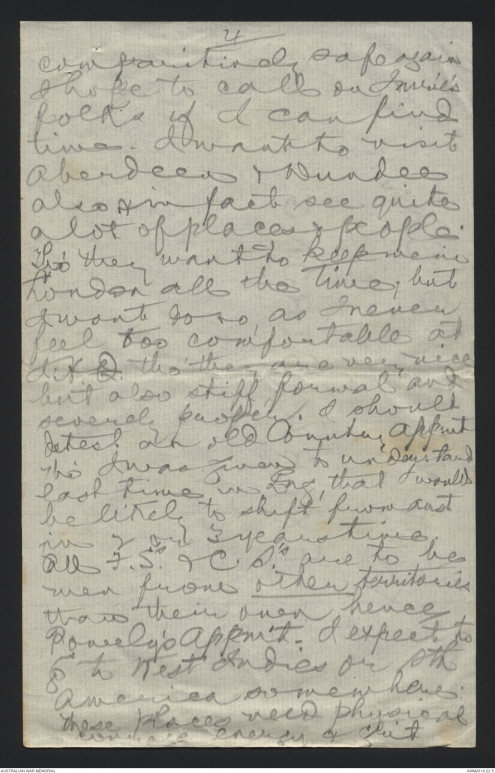 4
comparitively safe again
I hope to call on Innie's
folks if I can find
time. I want to visit
Aberdeen & Dundee
also & in fact see quite
a lot of places & people.
tho' they want to keep me in
London all the time, but
I want to go, as I never
feel too comfortable at
I.H.Q. tho' they are very nice
but also stiff formal and
severely proper. I should
detest an old Country appmt
tho' I was given to understand
last time in Eng, that I would
be likely to shift from Aust
in 2 or 3 years time.
All F.S's. & C.S's are to be
men from other territories
than their own hence
Appmt. I expect to
go to West Indies or Sth
America somewhere.
These places need physical
courage energy & Grit
AUSTRALIAN WAR MEMORIAL